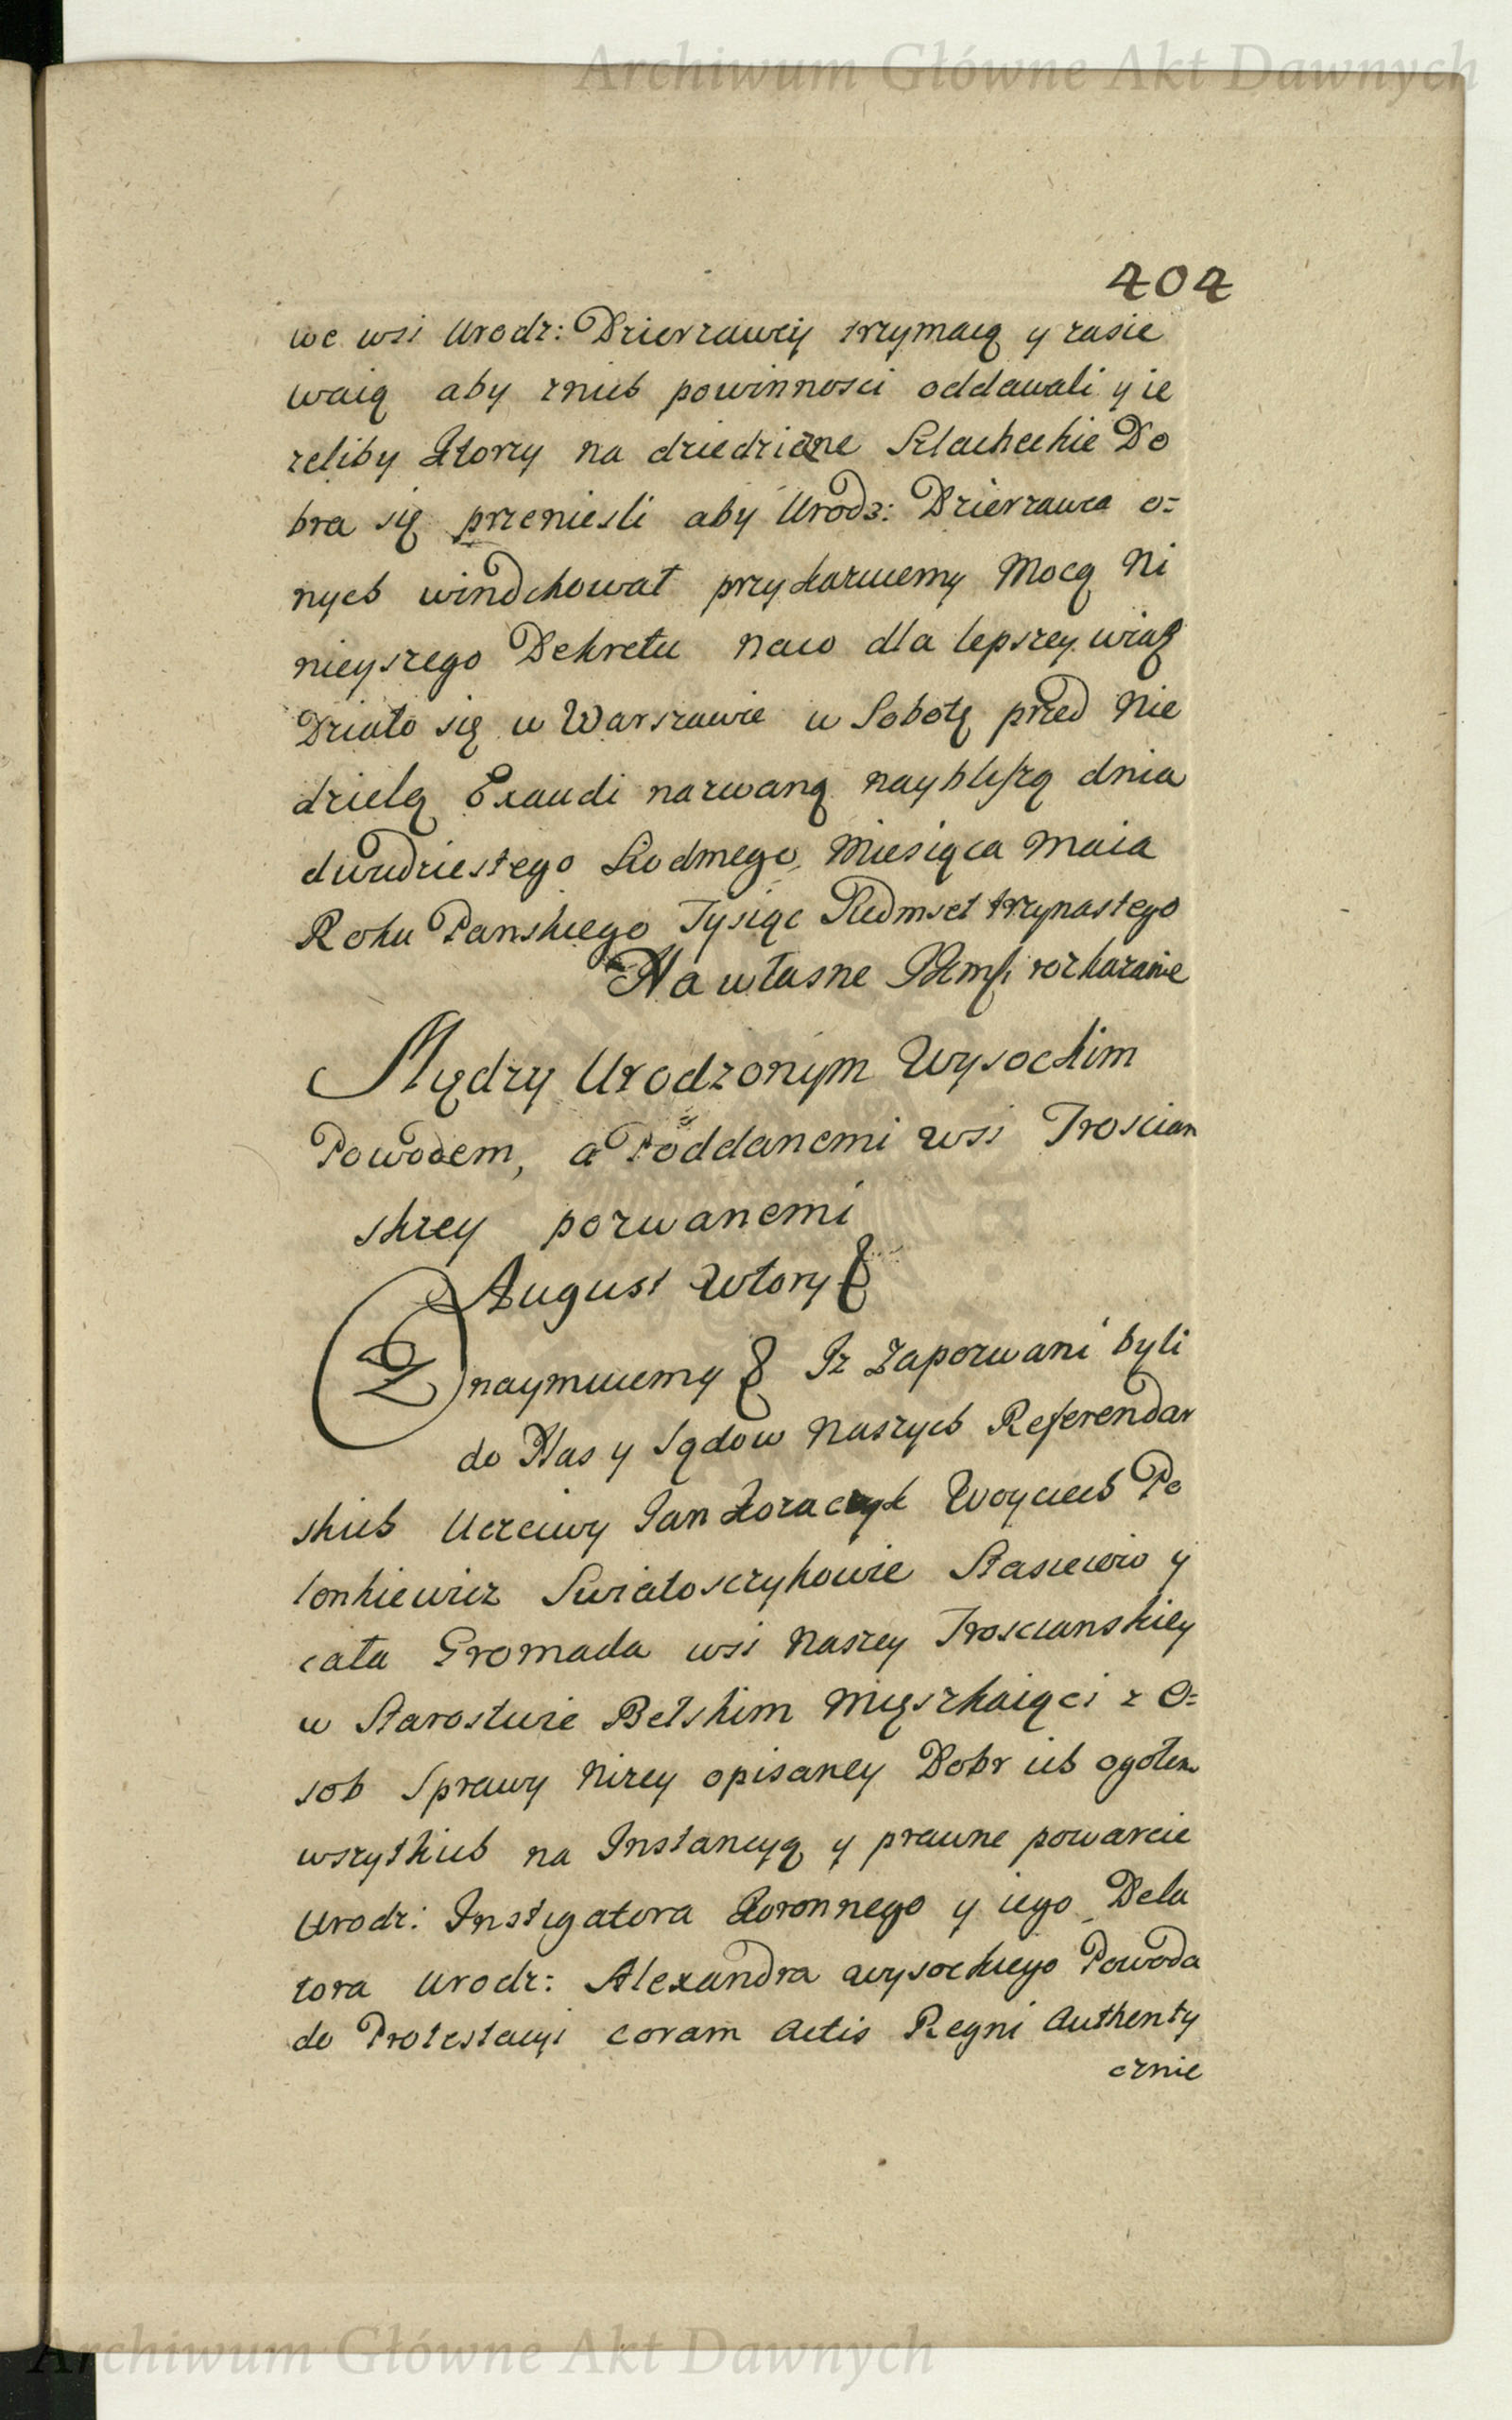 Archiwum Główne Akt Dawnych
404
we wsi Urodz: Dzierzawcy trzymaią y zasie
waią aby znich powinnosci oddawali y ie
zeliby Ktorzy na dziedziczne Szlacheckie Do
bra się przeniesli aby Urodz: Dzierzawca o=
nych windykował przykazuiemy Mocą Ni
nieyszego Dekretu naco dla lepszey wiary
Działo się w Warszawie w Sobotę przed Nie
dzielą Exaudi nazwaną naybliszą dnia
dwudziestego Siodmego Miesiąca Maia
Roku Panskiego Tysiąc Siedmset trzynastego
Na własne rozkazanie
Między Urodzonym Wysockim
Powodem, a Poddanemi wsi Troscian
skiey pozwanemi
August Wtory &
Znaymuiemy & Iz Zapozwani byli
do Nas y Sądow Naszych Referendar
skich Uczciwy Jan Kozaczyk Woyciech Po
lonkiewicz Swiatosczykowie Stasiewio y
cała Gromada wsi Naszey Trosciańskiey
w Starostwie Bełskim Mięszkaiąci z O=
sob Sprawy Nizey opisaney Dobr ich ogołem
wszytkich na Instancyą y prawne powarcie
Urodz: Instygatora Koronnego y iego Dela
tora Urodz: Alexandra Wysockiego Powoda
do Protestacyi coram Actis Regni Authenty
cznie
Archiwum Główne Akt Dawnych